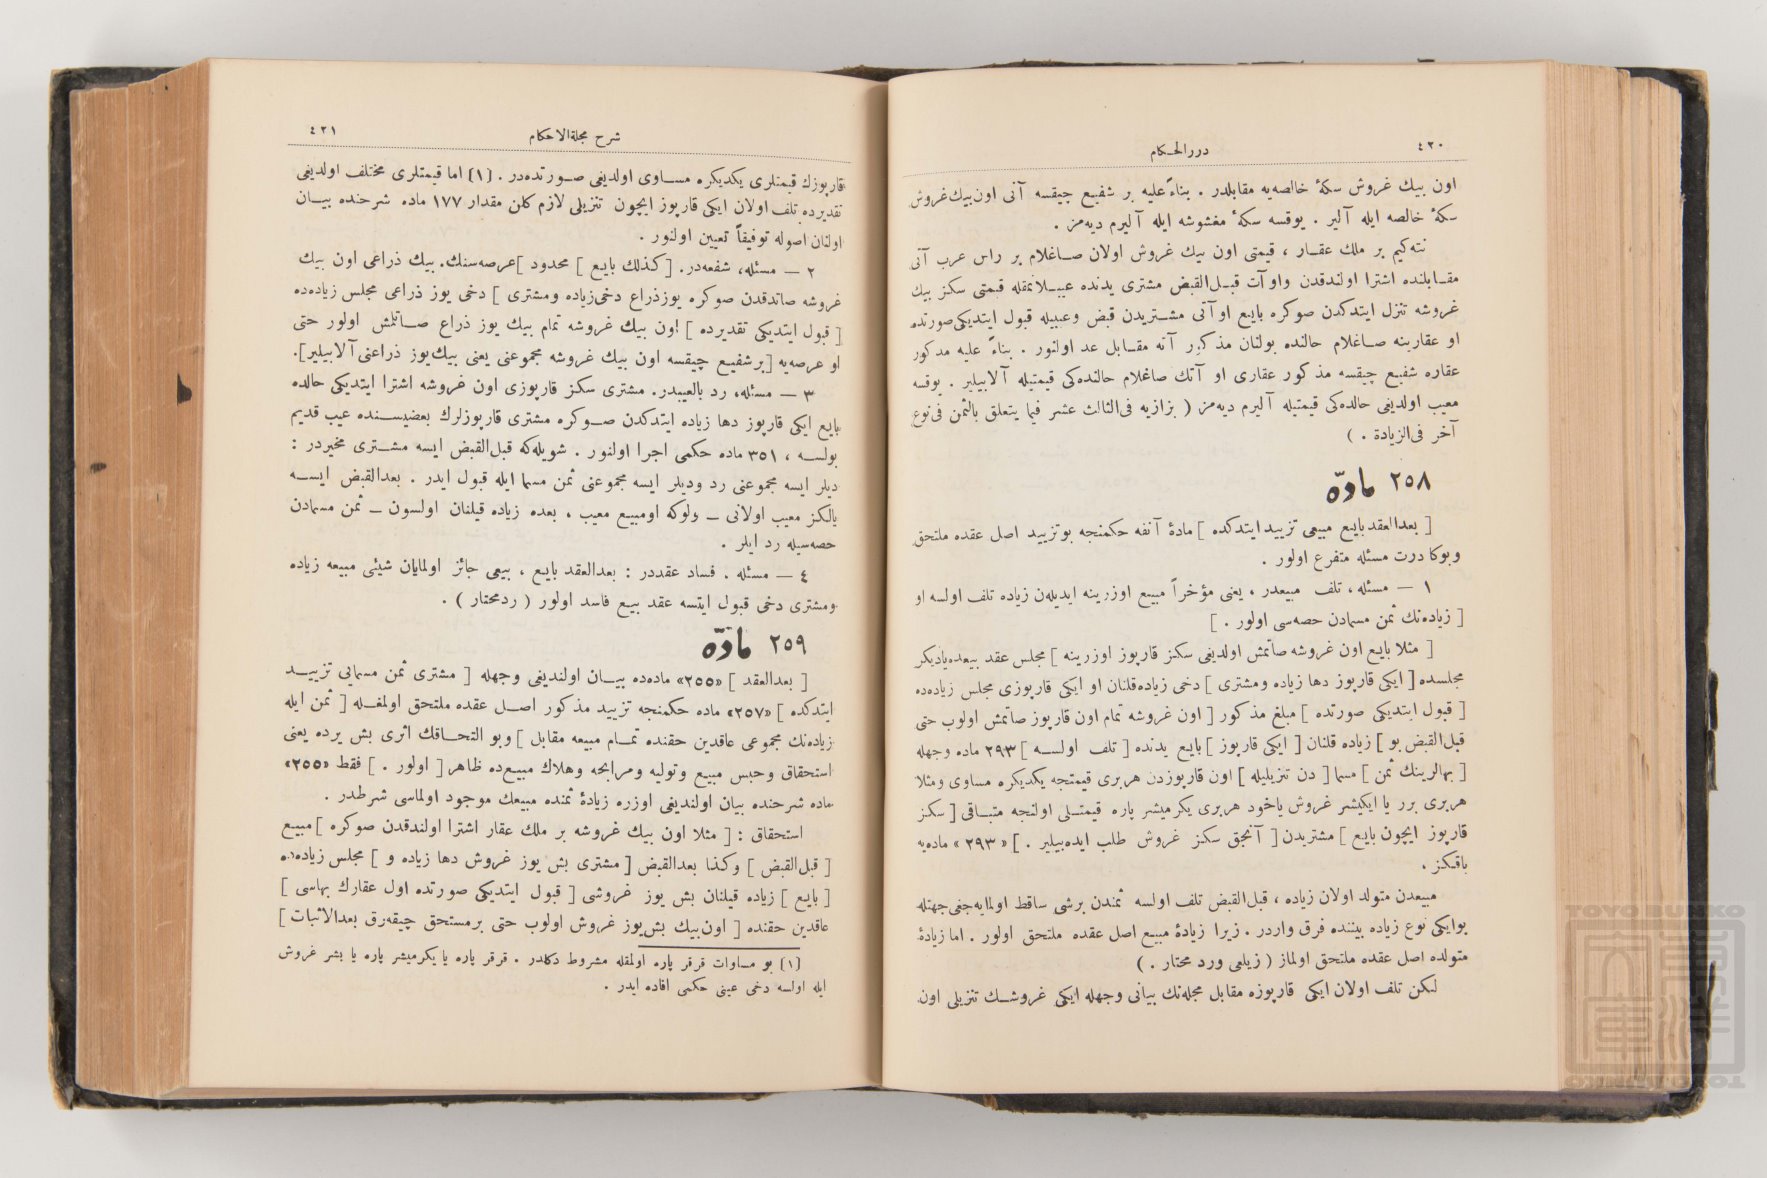 ٤٢٠
دررالحكام
اون بيك غروش سكۀ خالصه‌يه مقابلدر . بناءً عليه بر شفيع چيقسه آنى اون بيك غروش
سكۀ خالصه ايله آلير . يوقسه سكۀ مغشوشه ايله آليرم ديه‌مز .
نته‌كيم بر ملك عقار ، قيمتى اون بيك غروش اولان صاغلام بر راس عرب آتى
مقابلنده اشترا اولندقدن واو آت قبل‌القبض مشترى يدنده عيبلانمقله قيمتى سكز بيك
غروشه تنزل ايتدكدن صوكره بايع او آتى مشتريدن قبض وعيبيله قبول ايتديكى صورتده
او عقار ينه صاغلام حالنده بولنان مذكور آته مقابل عد اولنور . بناءً عليه مذكور
عقاره شفيع چيقسه مذكور عقارى او آتك صاغلام حالنده‌كى قيمتيله آلابيلير . يوقسه
معيب اولديغى حالده‌كى قيمتيله آليرم ديه‌مز ( بزازيه فى‌الثالث عشر فيما يتعلق بالثمن فى نوع
آخر فى‌الزيادة . )
٢٥٨ مادّه
[ بعدالعقد بايع مبيعى تزييد ايتدكده ] مادۀ آنفه حكمنجه بو تزييد اصل عقده ملتحق
وبوكا درت مسئله متفرع اولور .
١ — مسئله ، تلف مبيعدر ، يعنى مؤخراً مبيع اوزرينه ايديلەن زياده تلف اولسه او
[ زياده‌نك ثمن مسمادن حصه‌سى اولور . ]
[ مثلا بايع اون غروشه صاتمش اولديغى سكز قارپوز اوزرينه ] مجلس عقد بيعده ياديكر
مجلسده [ ايكى قارپوز دها زياده ومشترى ] دخى زياده قلنان او ايكى قارپوزى مجلس زياده‌ده
[ قبول ايتديكى صورتده ] مبلغ مذكور [ اون غروشه تمام اون قارپوز صاتمش اولوب حتى
قبل‌القبض بو ] زياده قلنان [ ايكى قارپوز ] بايع يدنده [ تلف اولسه ] ٢٩٣ ماده وجهله
[ بهالرينك ثمن ] مسما [ دن تنزيليله ] اون قارپوزدن هربرى قيمتجه يكديكره مساوى ومثلا
هربرى برر يا ايكيشر غروش ياخود هربرى يكرميشر پاره قيمتلى اولنجه متباقى [ سكز
قارپوز ايچون بايع ] مشتريدن [ آنجق سكز غروش طلب ايده‌بيلير . ] « ٢٩٣ » ماده‌يه
باقكز .
مبيعدن متولد اولان زياده ، قبل‌القبض تلف اولسه ثمندن برشى ساقط اولمايه‌جغى جهتله
بوايكى نوع زياده بيننده فرق واردر . زيرا زيادۀ مبيع اصل عقده ملتحق اولور . اما زيادۀ
متولده اصل عقده ملتحق اولماز ( زيلعى ورد محتار . )
لكن تلف اولان ايكى قارپوزه مقابل مجله‌نك بيانى وجهله ايكى غروشك تنزيلى اون
شرح مجلةالاحكام
٤٢١
قارپوزك قيمتلرى يكديكره مساوى اولديغى صورتده‌در . (١) اما قيمتلرى مختلف اولديغى
تقديرده تلف اولان ايكى قارپوز ايچون تنزيلى لازم كلن مقدار ١٧٧ ماده شرحنده بيان
اولنان اصوله توفيقاً تعيين اولنور .
٢ — مسئله، شفعه‌در. [ كذلك بايع ] محدود [ عرصه‌سنك. بيك ذراعى اون بيك
غروشه صاتدقدن صوكره يوزذراع دخى زياده ومشترى ] دخى يوز ذراعى مجلس زياده‌ده
[ قبول ايتديكى تقديرده ] اون بيك غروشه تمام بيك يوز ذراع صاتلمش اولور حتى
او عرصه‌يه [ بر شفيع چيقسه اون بيك غروشه مجموعنى يعنى بيك يوز ذراعنى آلابيلير ].
٣ — مسئله، رد بالعيبدر. مشترى سكز قارپوزى اون غروشه اشترا ايتديكى حالده
بايع ايكى قارپوز دها زياده ايتدكدن صوكره مشترى قارپوزلرك بعضيسنده عيب قديم
بولسه ، ٣٥١ ماده حكمى اجرا اولنور . شويله‌كه قبل‌القبض ايسه مشترى مخيردر :
ديلر ايسه مجموعنى رد وديلر ايسه مجموعنى ثمن مسما ايله قبول ايدر . بعدالقبض ايسه
يالكز معيب اولانى ـ ولوكه اومبيع معيب ، بعده زياده قيلنان اولسون ـ ثمن مسمادن
حصه‌سيله رد ايلر .
٤ — مسئله . فساد عقددر : بعدالعقد بايع ، بيعى جائز اولمايان شيئى مبيعه زياده
ومشترى دخى قبول ايتسه عقد بيع فاسد اولور ( ردمحتار ) .
٢٥٩ مادّه
[ بعدالعقد ] «٢٥٥» ماده‌ده بيان اولنديغى وجهله [ مشترى ثمن مسمايى تزييد
ايتدكده ] «٢٥٧» ماده حكمنجه تزييد مذكور اصل عقده ملتحق اولمغله [ ثمن ايله
زياده‌نك مجموعى عاقدين حقنده تمام مبيعه مقابل ] وبو التحاقك اثرى بش يرده يعنى
استحقاق وحبس مبيع وتوليه ومرابحه وهلاك مبيع‌ده ظاهر [ اولور . ] فقط «٢٥٥»
ماده شرحنده بيان اولنديغى اوزره زيادۀ ثمنده مبيعك موجود اولماسى شرطدر .
استحقاق : [ مثلا اون بيك غروشه بر ملك عقار اشترا اولندقدن صوكره ] مبيع
[ قبل‌القبض ] وكذا بعدالقبض [ مشترى بش يوز غروش دها زياده و ] مجلس زياده‌ده
[ بايع ] زياده قيلنان بش يوز غروشى [ قبول ايتديكى صورتده اول عقارك بهاسى ]
عاقدين حقنده [ اون بيك بش يوز غروش اولوب حتى برمستحق چيقه‌رق بعدالاثبات ]
(١) بو مساوات قرقر پاره اولمقله مشروط دكلدر . قرقر پاره يا يكرميشر پاره يا بشر غروش
ايله اولسه دخى عينى حكمى افاده ايدر .
TOYO BUNKO